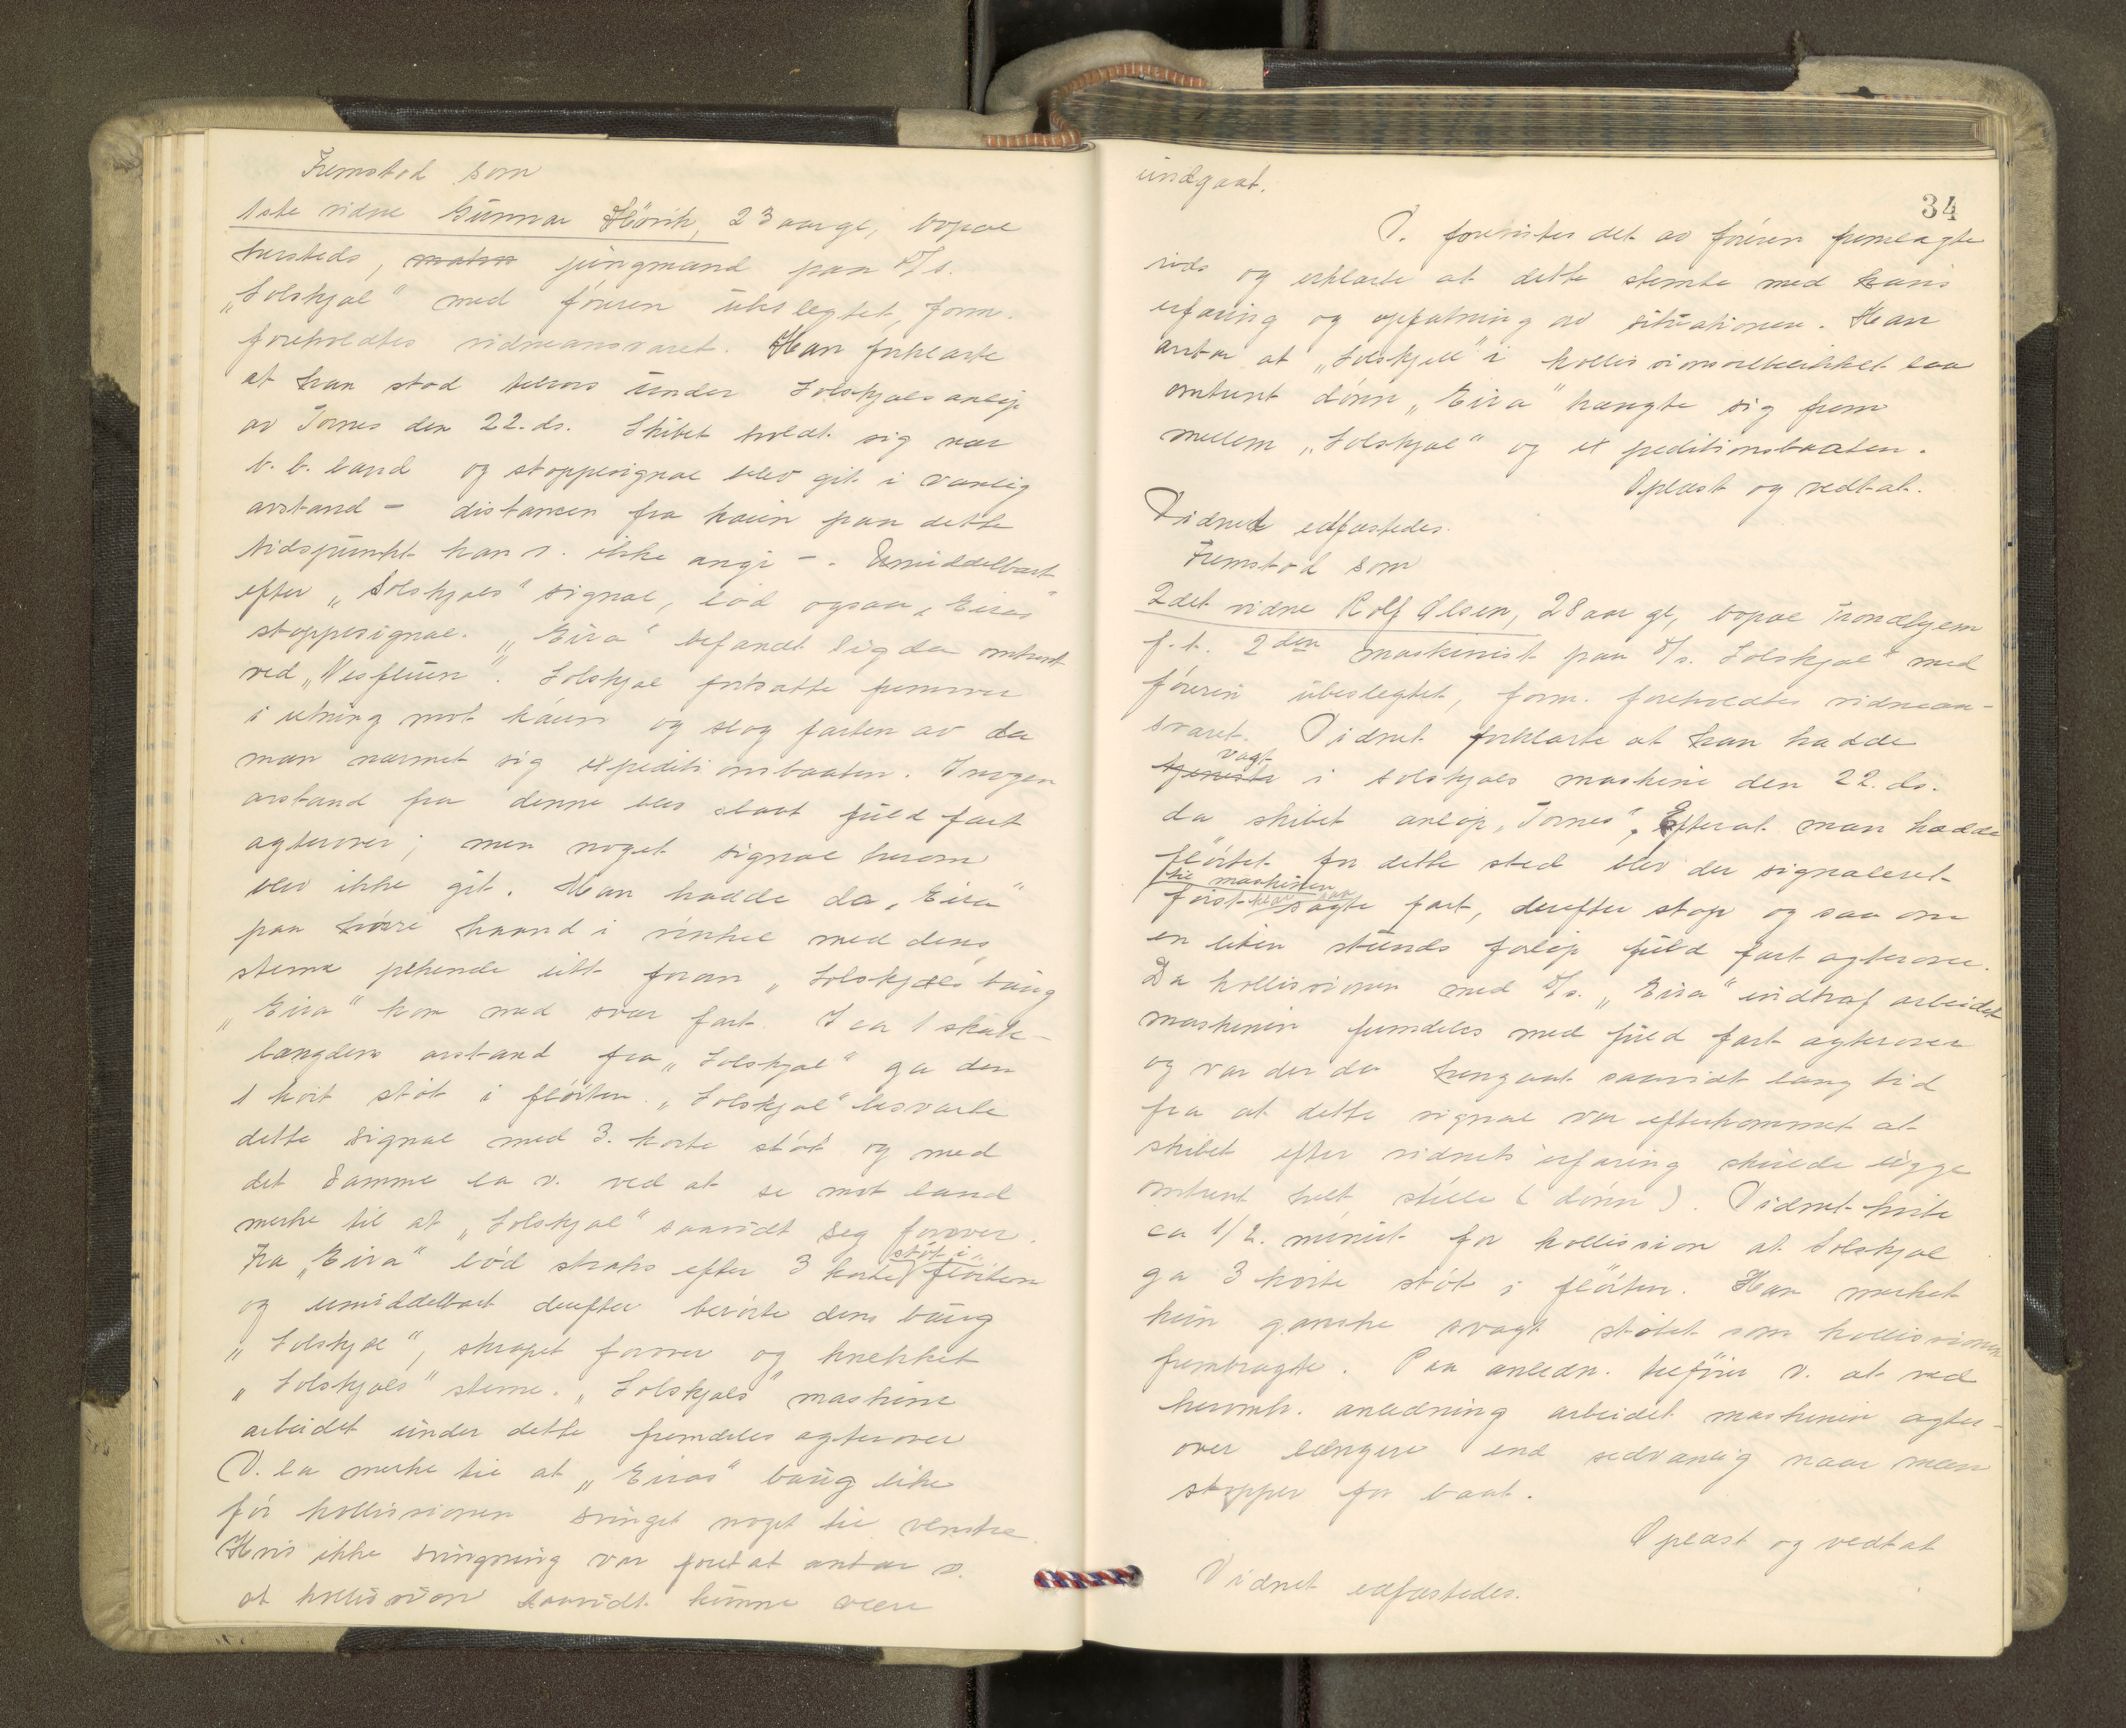 Fremstod som
1ste vidne Gunnar Hövik, 23 aar gl, bopæl
hersteds, matro jungmand paa D/s.
„Solskjæl" med föreren ubeslegtet, form.
foreholdtes vidneansvaret. Han forklarte
at han stod tilrors under Solskjæls anlöp
av Tornes den 22. ds. Skibet holdt sig nær
b.b. land og stoppesignal blev git i vanlig
avstand - distancen fra kaien paa dette
tidspunkt kan v. ikke angi -. Umiddelbart
efter „Solskjæls" signal, lød ogsaa „Eira's"
stoppesignal. „Eira" befandt sig da omtrent
ved „Nesfluen". Solskjæl fortsatte fremover
i retning mot kaien og slog farten av da
man nærmet sig expeditionsbaaten. I nogen
avstand fra denne blev slaat fuld fart
agterover; men noget signal herom
blev ikke git. Man hadde da „Eira"
paa höire haand i vinkel med dens
stevne pekende ut foran „Solskjæls" baug
„Eira" kom med svær fart. I ca 1 skibs-
længdes avstand fra „Solskjæl" ga den
1 kort stöt i flöiten. „Solskjæl" besvarte
dette signal med 3. korte stöt og med
det samme la v. ved at se mot land
merke til at „Solskjæl" saavidt seg forover.
Fra „Eira" löd straks efter 3 korte stöt i flöiten
og umiddelbart derefter berörte dens baug
„Solskjæl", skrapet forover og knekket
„Solskjæls" stevne. „Solskjæls" maskine
arbeidet under dette fremdeles agterover
V. la merke til at „Eiras" baug like
för kollisionen svinget noget til venstre
Hvis ikke svingning var foretat antar v.
at kollision saavidt kunne være
undgaat.
34
V. forevistes det av föreren fremlagte
rids og erklærte at dette stemte med hans
erfaring og opfatning av situationen. Han
antar at „Solskjell" i kollissionsöieblikket laa
omtrent död, „Eira" trængte sig frem
mellem „Solskjæl" og expeditionsbaaten.
Oplæst og vedtat.
Vidnet edfæstedes.
Fremstod som
2det vidne Rolf Olsen, 28 aar gl, bopæl Trondhjem
f.t. 2den maskinist paa D/s. Solskjæl" med
föreren ubeslegtet, form. foreholdtes vidnean-
svaret. Vidnet forklarte at han hadde
tjeneste vagt i Solskjæls maskine den 22. ds.
da skibet anlöp „Tornes". Efterat man hadde
flöitet for dette sted blev der signaleret
til maskinen
först sagte fart, derefter stop og saa om
en liten stunds forlöp fuld fart agterover.
Da kollissionen med D/s. „Eira" indtraf arbeidet
maskinen fremdeles med fuld fart agterover
og var der da hengaat saavidt lang tid
fra at dette signal var efterkommet at
skibet efter vidnets erfaring skulde ligge
omtrent helt stille (död). Vidnet hörte
ca 1/2. minut för kollission at Solskjæl
ga 3 korte stöt i flöiten. Han merket
kun ganske svagt stötet som kollissionen
frembragte. Paa anledn. tilföier v. at ved
heromh. anledning arbeidet maskinen agter-
over længere end sedvanlig naar man
stopper for baat.
Oplæst og vedtat
Vidnet edfæstedes.